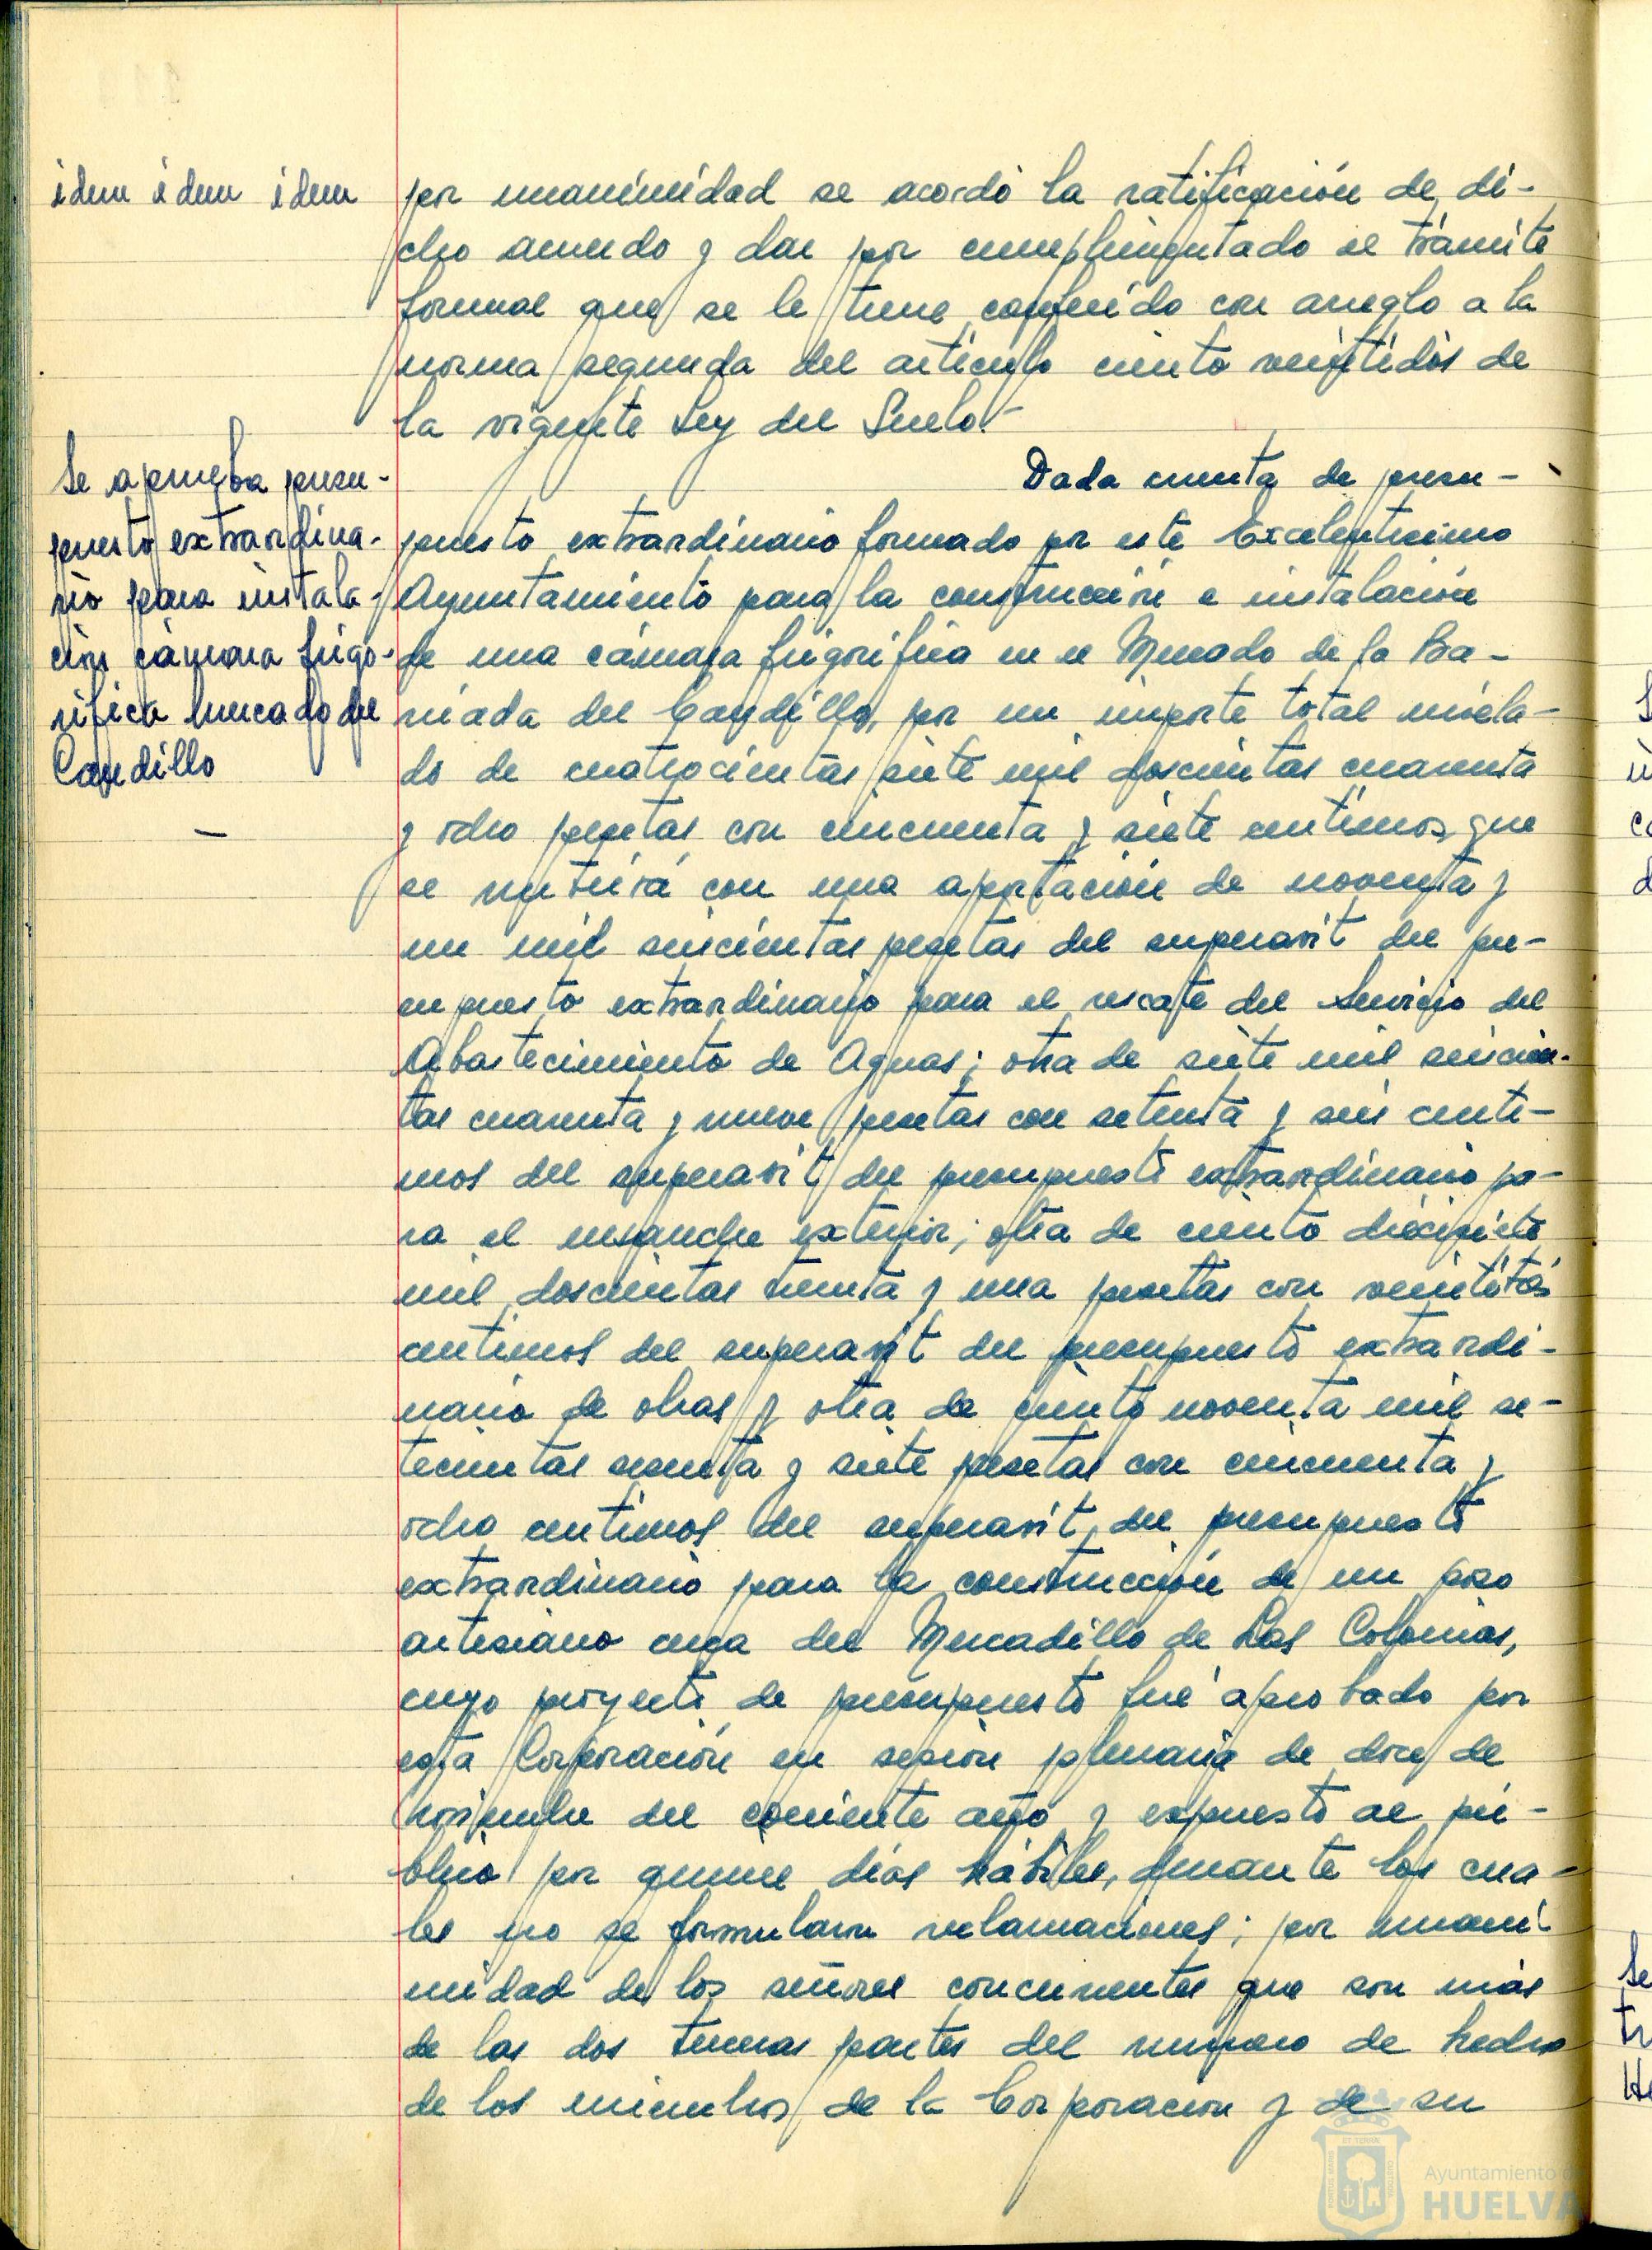 idem idem idem
por unanimidad se acordó la ratificación de di-
cho acuerdo y dar por cumplimentado el trámite
formal que se le tiene conferido con arreglo a la
norma segunda del artículo ciento veintidós de
la vigente Ley del Suelo.-
Se aprueba presu-
puesto extraordina-
rio para instala-
ción cámara frigo-
rífica mercado del
Caudillo
Dada cuenta de presu-
puesto extraordinario formado por este Excelentísimo
Ayuntamiento para la construcción e instalación
de una cámara frigorífica en el Mercado de la Ba-
rriada del Caudillo, por un importe total nivela-
do de cuatrocientas siete mil doscientas cuarenta
y ocho pesetas con cincuenta y siete centimos, que
se nutrirá con una aportación de noventa y
un mil seiscientas pesetas del superavit del pre-
supuesto extraordinario para el rescate del Servicio del
Abastecimiento de Aguas; otra de siete mil seiscien-
tas cuarenta y nueve pesetas con setenta y seis centi-
mos del superavit del presupuesto extraordinario pa-
ra el ensanche exterior; otra de ciento diecisiete
mil doscientas treinta y una pesetas con veintitrés
centimos del superavit del presupuesto extraordi-
nario de obras y otra de ciento noventa mil se-
tecientas sesenta y siete pesetas con cincuenta y
ocho centimos del superavit del presupuesto
extraordinario para la construcción de un pozo
artesiano cerca del Mercadillo de Las Colonias,
cuyo proyecto de presupuesto fué aprobado por
esta Corporación en sesión plenaria de doce de
Noviembre del corriente año y expuesto al pú-
blico por quince días hábiles, durante los cua-
les no se formularon reclamaciones; por unani
midad de los señores concurrentes que son más
de las dos terceras partes del número de hecho
de los miembros de la Corporación y de su
Ayuntamiento de
HUELVA